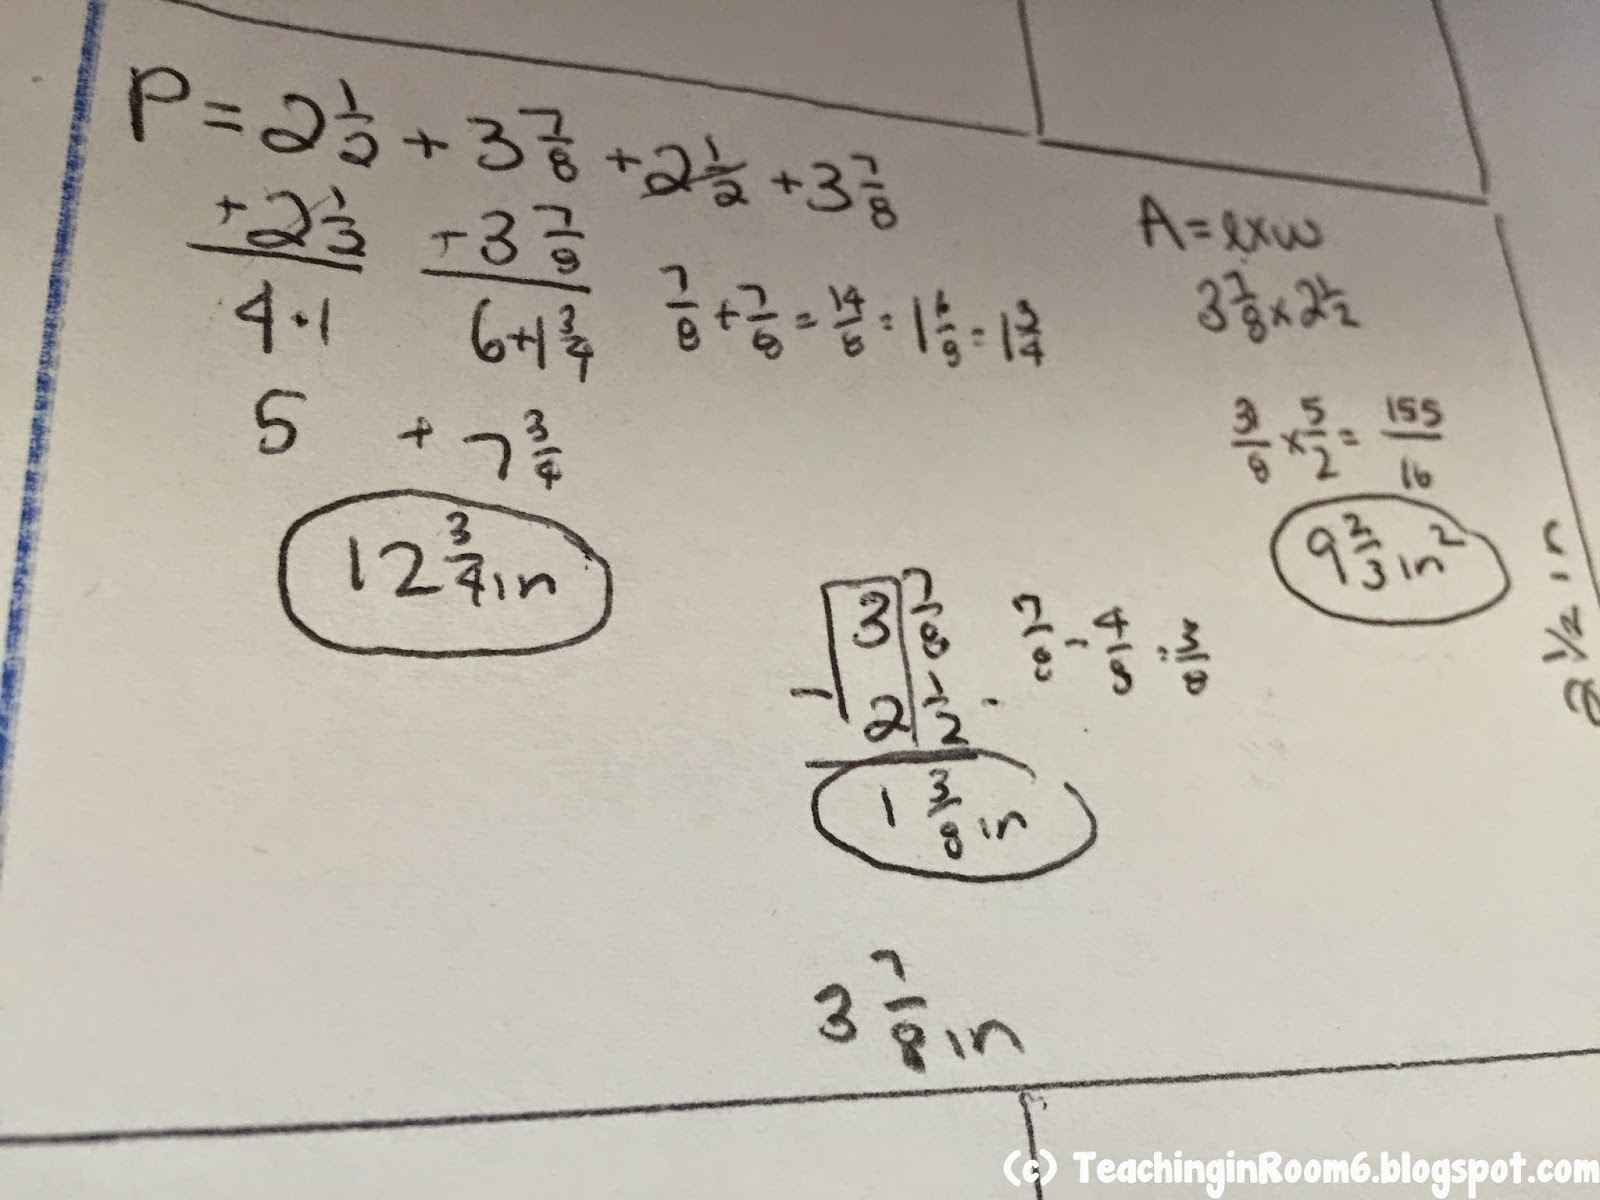 P = 2 1/2 + 3 7/8 + 2 1/2 + 3 7/8
+ 2 1/2
+ 3 7/8
4 + 1
6 + 1 3/4
7/8 + 7/8 = 14/8 = 1 6/8 = 1 3/4
5 + 7 3/4
12 3/4 in
A = l x w
3 7/8 x 2 1/2
31/8 x 5/2 = 155/16
9 2/3 in²
3 7/8
- 2 1/2
7/8 - 4/8 = 3/8
1 3/8 in
2 1/2 in
3 7/8 in
(c) TeachinginRoom6.blogspot.com